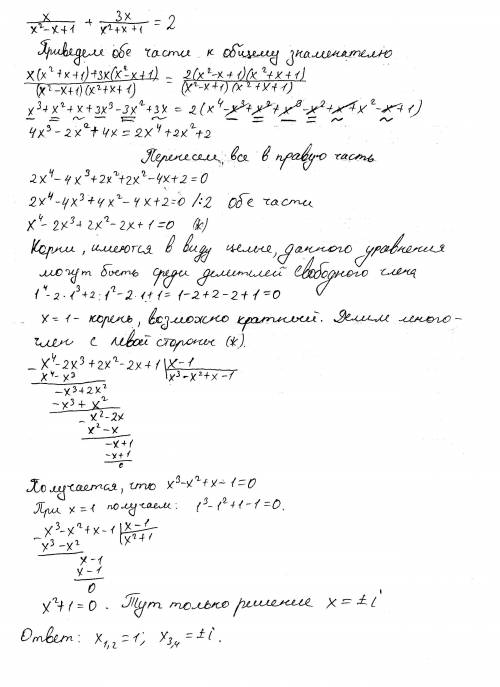 x/(x²-x+1) + 3x/(x²+x+1) = 2
Приведем обе части к общему знаменателю
(x(x²+x+1)+3x(x²-x+1))/((x²-x+1)(x²+x+1)) = (2(x²-x+1)(x²+x+1))/((x²-x+1)(x²+x+1))
x³+x²+x+3x³-3x²+3x = 2(x⁴-x³+x²+x³-x²+x+x²-x+1)
4x³-2x²+4x=2x⁴+2x²+2
Перенесем все в правую часть
2x⁴-4x³+2x²+2x²-4x+2=0
2x⁴-4x³+4x²-4x+2=0 /:2 обе части
x⁴-2x³+2x²-2x+1=0 (*)
Корни, имеются в виду целые, данного уравнения
могут быть среди делителей свободного члена
1⁴-2·1³+2·1²-2·1+1=1-2+2-2+1=0
x=1- корень, возможно кратный. Делим много-
член с левой стороны (*).
-x⁴-2x³+2x²-2x+1 | x-1
x⁴-x³ | x³-x²+x-1
-x³+2x²
-x³+x²
-x²-2x
x²-x
-x+1
-x+1
0
Получается, что x³-x²+x-1=0
При x=1 получаем: 1³-1²+1-1=0.
-x³-x²+x-1 | x-1
x³-x² | x²+1
x-1
x-1
0
x²+1=0. Тут только решение x=±i
Ответ: x₁,₂=1; x₃,₄=±i.